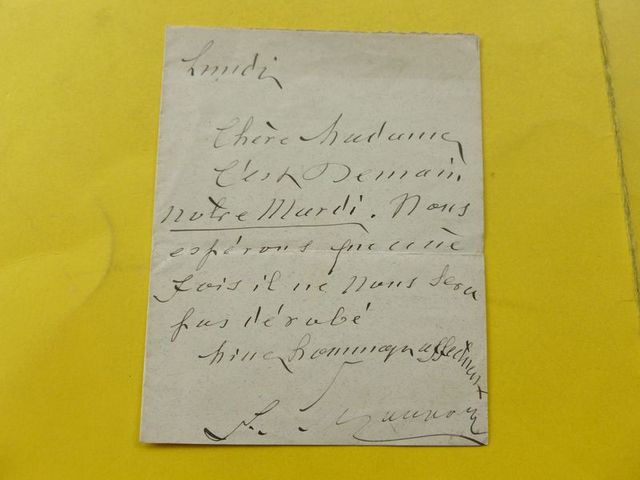 Lundi
Chère Madame,
C'est Demain
notre Mardi. Nous
espérons que cette
fois il ne nous sera
pas dérobé
hommages affectueux